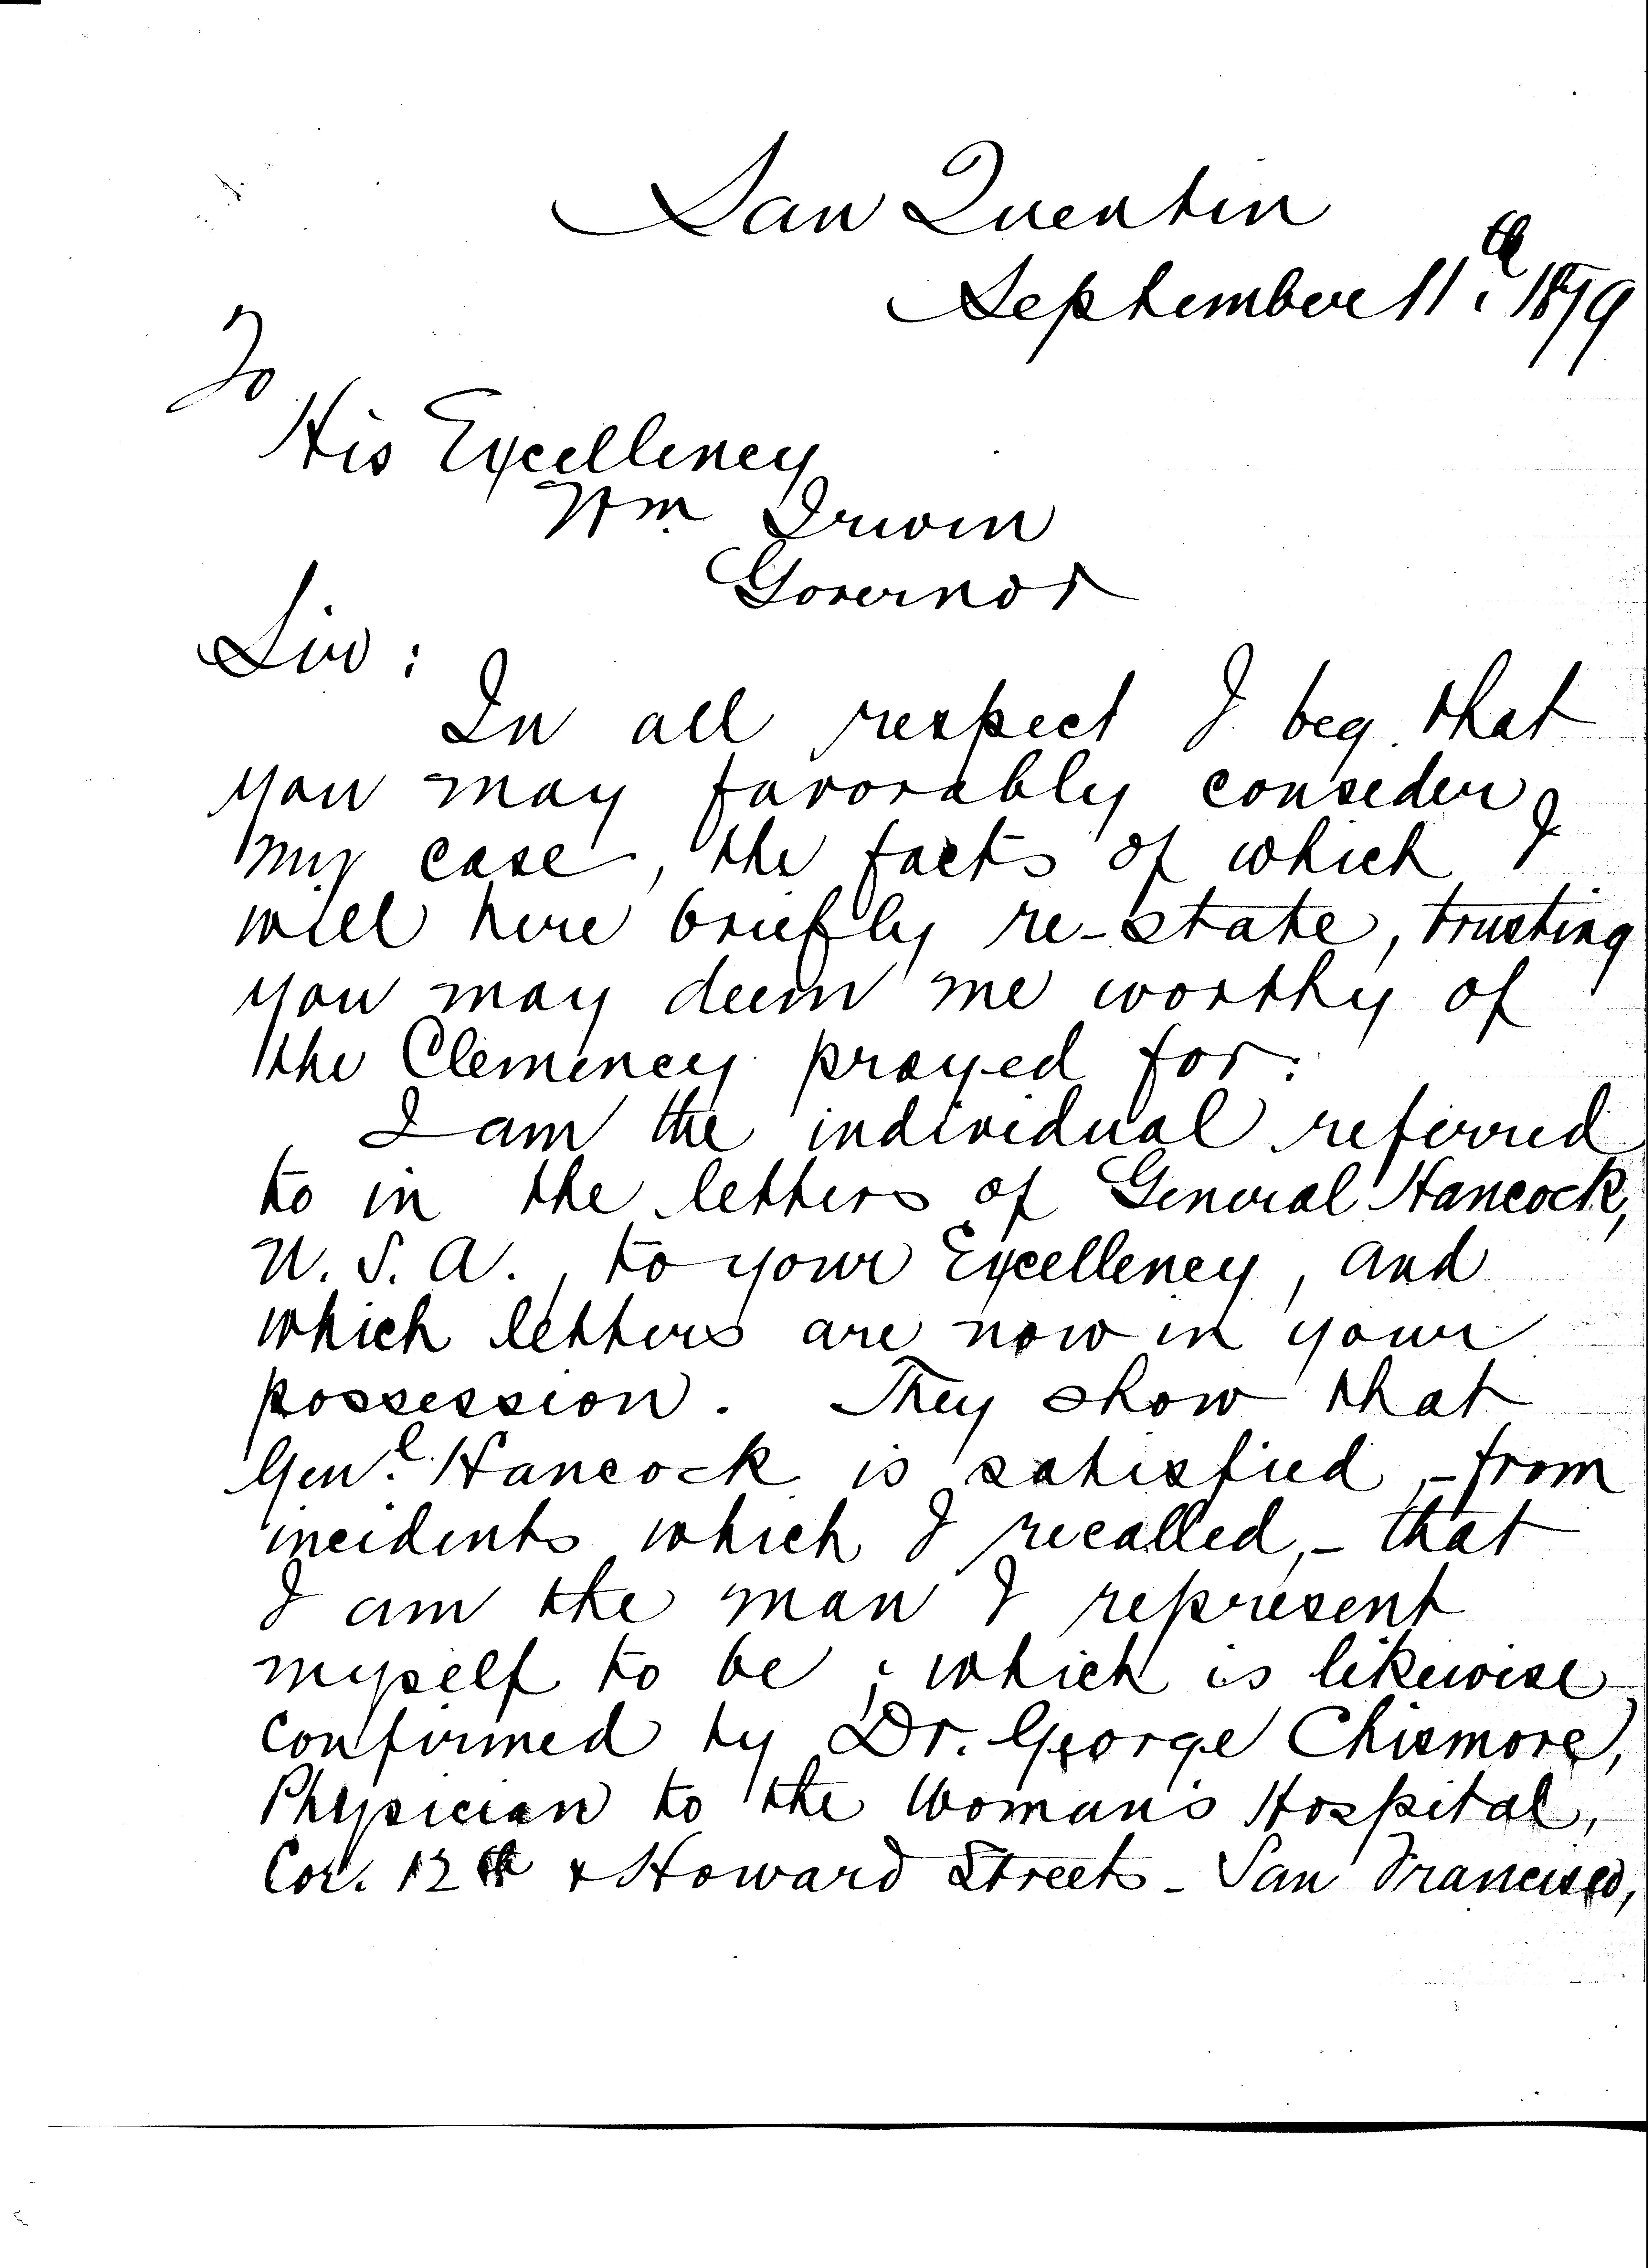 San Quentin
September 11th, 1879
To
His Excellency
Wm Irwin
Governor
Sir:
In all respect I beg that
you may favorably consider
my case, the facts of which I
will here briefly re-state, trusting
you may deem me worthy of
the Clemency prayed for:
I am the individual referred
to in the letters of General Hancock,
U. S. A., to your Excellency, and
which letters are now in your
possession. They show that
Genl. Hancock is satisfied, - from
incidents which I recalled, - that
I am the man I represent
myself to be; which is likewise
confirmed by Dr. George Chismore,
Physician to the Woman's Hospital,
Cor. 12th & Howard Streets - San Francisco,